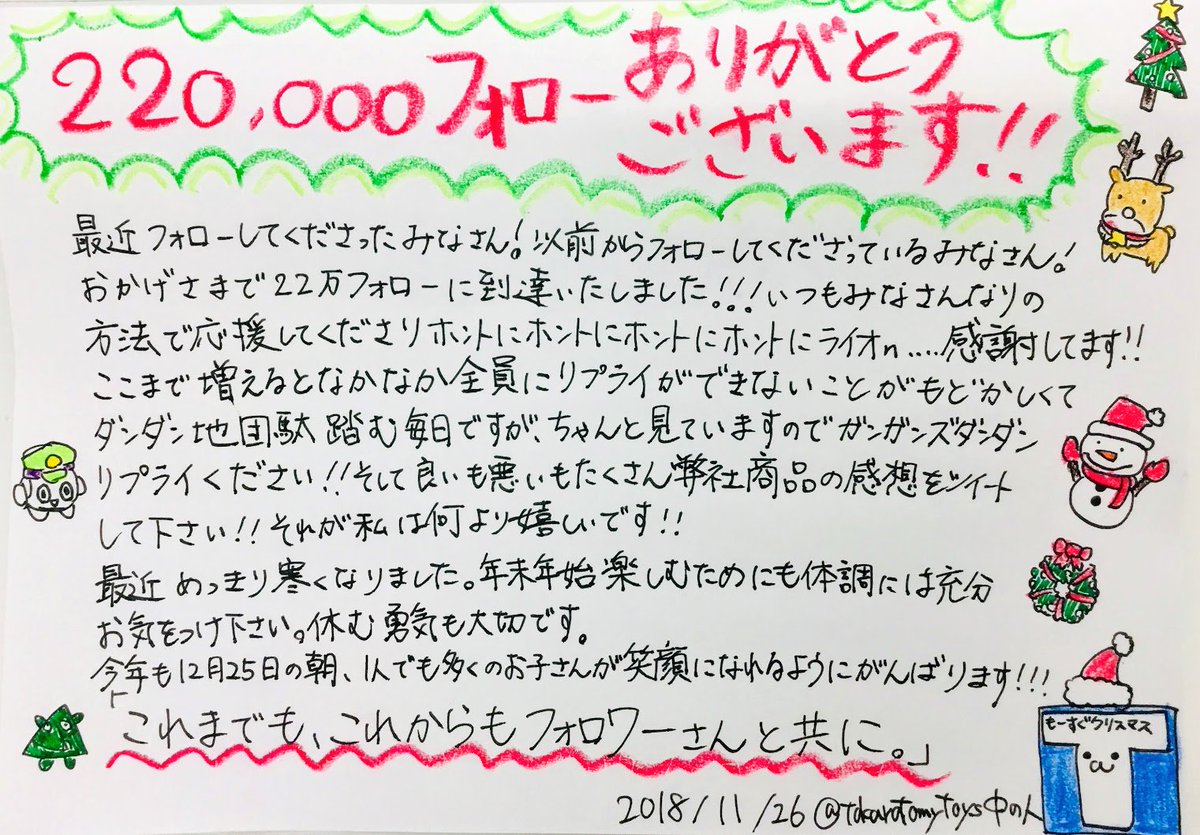 220,000フォローありがとう
ございます!!
最近フォローしてくださったみなさん!以前からフォローしてくださっているみなさん!
おかげさまで22万フォローに到達いたしました!!!いつもみなさんなりの
方法で応援してくださりホントにホントにホントにホントにライオn.....感謝してます!!
ここまで増えるとなかなか全員にリプライができないことがもどかしくて
ダンダン地団駄踏む毎日ですが、ちゃんと見ていますのでガンガンズダンダン
リプライください!!そして良いも悪いもたくさん弊社商品の感想をツイート
して下さい!!それが私は何より嬉しいです!!
最近めっきり寒くなりました。年末年始楽しむためにも体調には充分
お気をつけ下さい。休む勇気も大切です。
今年も12月25日の朝、1人でも多くのお子さんが笑顔になれるようにがんばります!!!
「これまでも、これからもフォロワーさんと共に。」
もーすぐクリスマス
2018/11/26 @takaratomytoys中の人